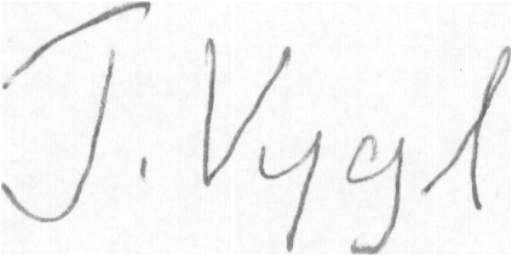 J. Vygl